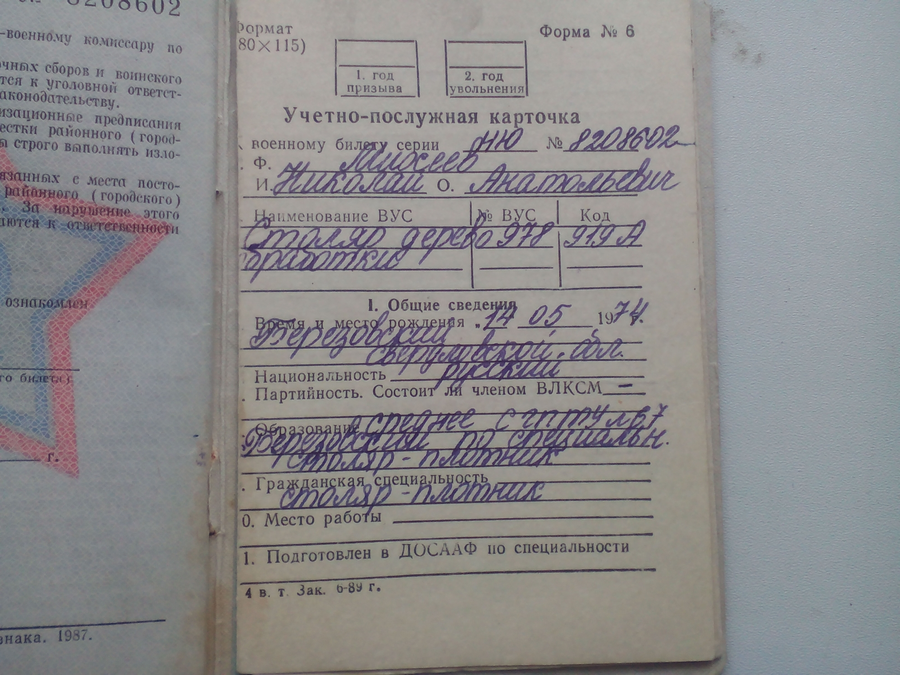 8208602
-военному комиссару по
очных сборов и воинского
тся к уголовной ответст-
аконодательству.
изационные предписания
естки районного (город-
ы строго выполнять изло-
язанных с места посто-
районного (городского)
. За нарушение этого
аются к ответственности
ознакомлен.
го билета)
г.
знака. 1987.
Формат
80×115)
Форма № 6
1. год
призыва
2. год
увольнения
Учетно-послужная карточка
К военному билету серии НЮ № 8208602
Ф. Михеев
И. Николай О. Анатольевич
Наименование ВУС № ВУС Код
Столяр дерево 978 919А
обработки
I. Общие сведения
Время и место рождения 14 05 1974 г.
Березовский
Свердловской обл.
Национальность русский
Партийность. Состоит ли членом ВЛКСМ –
Образование среднее СГПТУ 7
Березовский по специальн.
столяр-плотник
Гражданская специальность
столяр-плотник
0. Место работы
1. Подготовлен в ДОСААФ по специальности
4 в. т. Зак. 6-89 г.